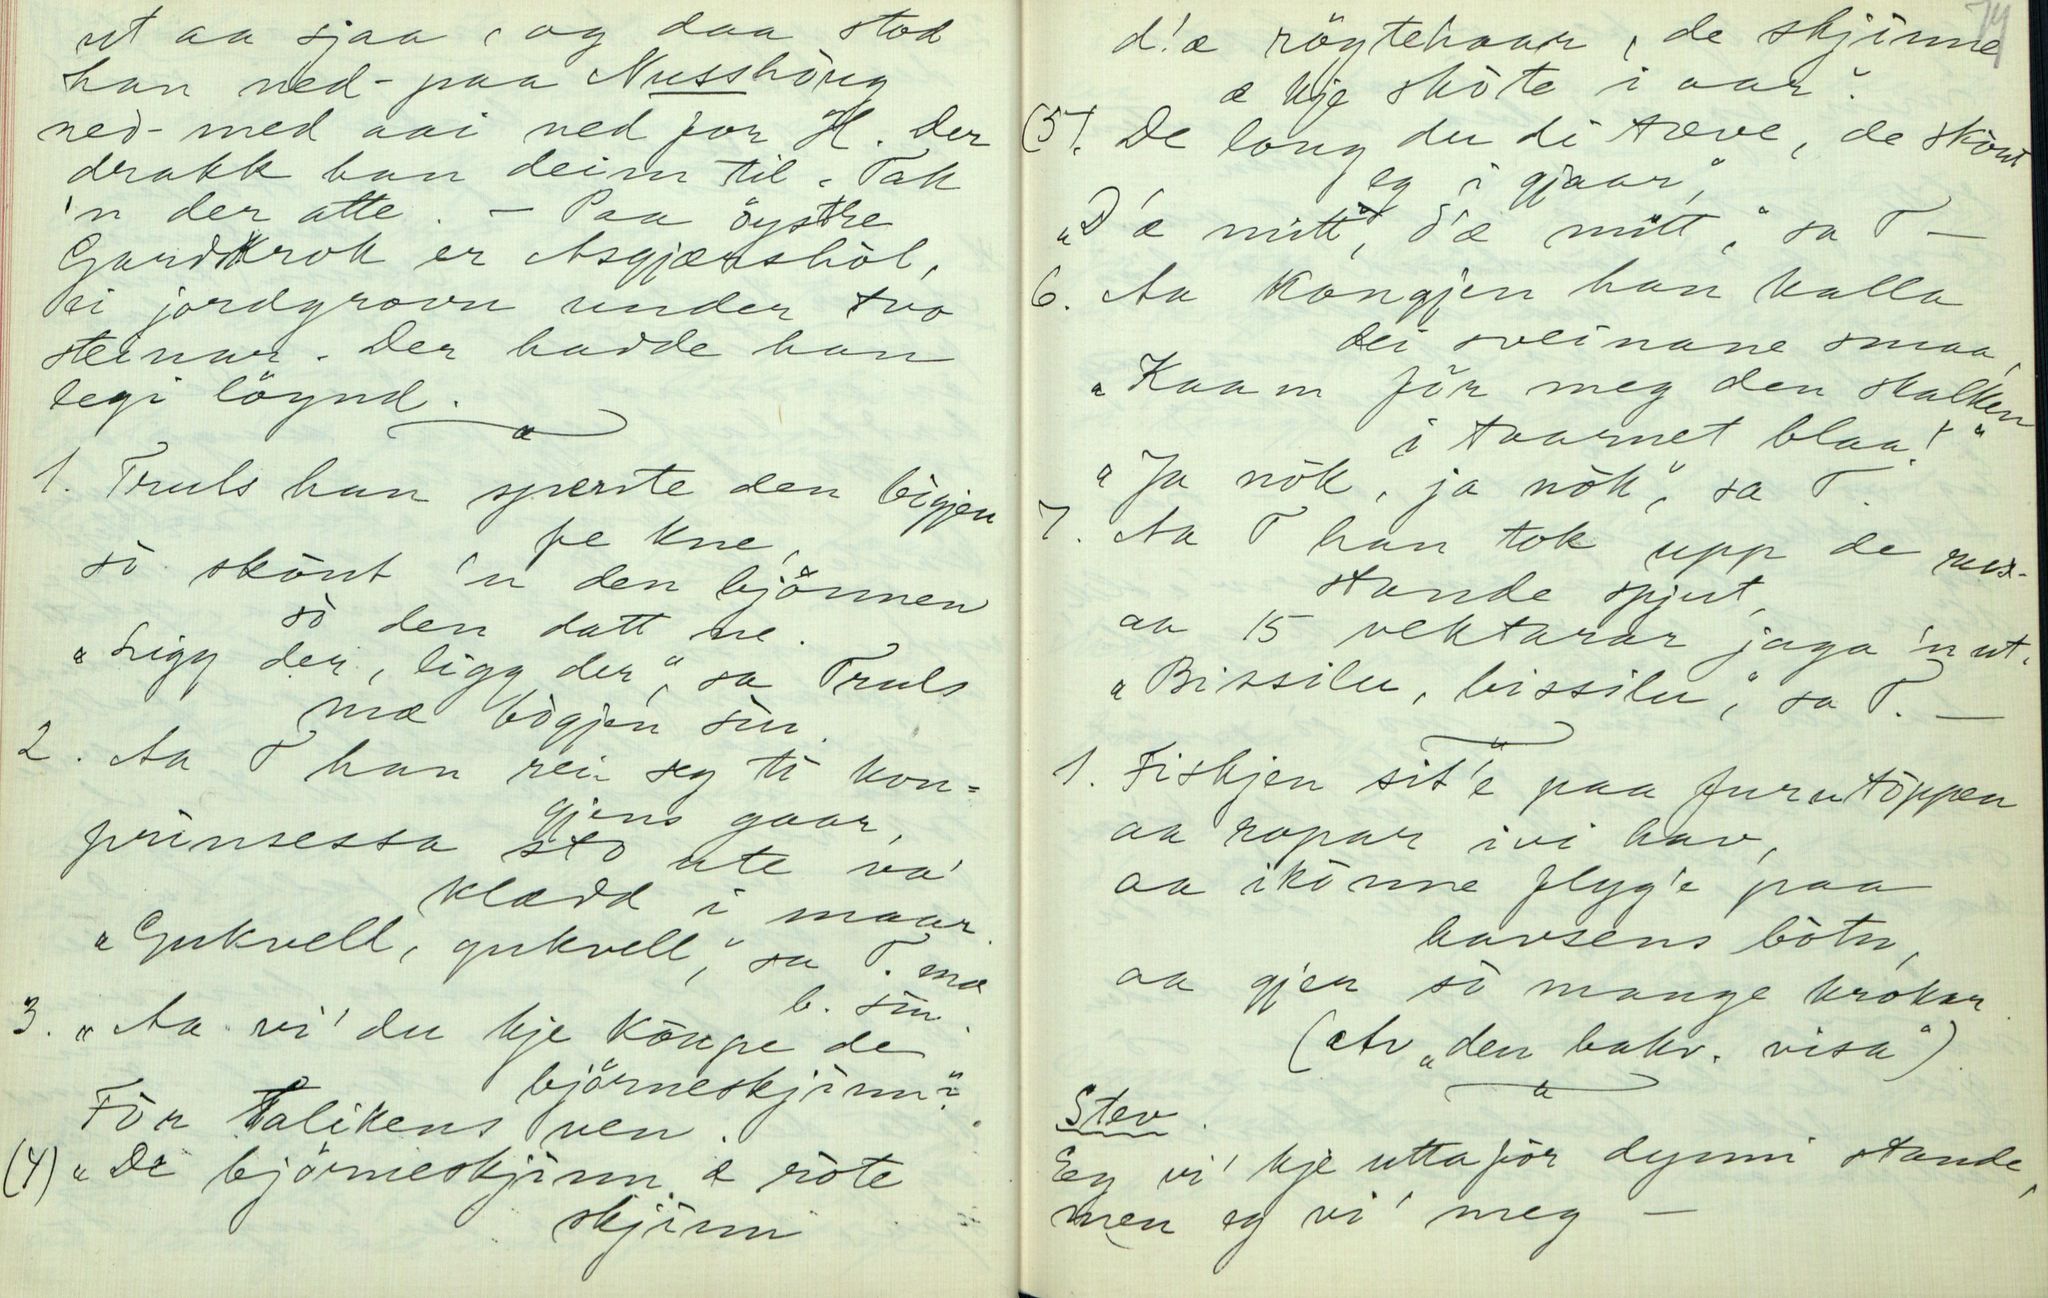 ut aa sjaa, og daa stod
han ned-paa Nusshöug
ned-med aai ned for H. Der
drakk han deim til. Tak
'n der atte. — Paa öystre
Gardkrok er Asgjærshòl,
ei jordgrovn under tvo
steinar. Der hadde han
legi löynd.
1. Truls han spente den bògjen
pe kne,
sò skòut 'n den björnen
sò den datt ne.
"Ligg der, ligg der", sa Truls
mæ bògjen sin.
2. Aa T han rei seg ti kon=
gjens gaar,
prinsessa sto ute va'
klædd i maar.
"Gukvell, gukvell," sa T. mæ
b. sin.
3. "Aa vi' du kje köupe de
björneskjinn"?
För talikens ven.
(4) "De björneskjinn æ ròte
skjinn
74
d'æ röytehaar, de skjinne
æ kje sköte i aar".
(5). De loug du di tæve, de sköut
eg i gjaar",
"D'æ mitt, d'æ mitt," sa T —
6. Aa kongjen han kalla
dei sveinane smaa,
"Kaam för meg den skalken
i taarnet blaa!"
"Ja nòk, ja nòk", sa T.
7. Aa T han tok upp de rus-
stande spjut,
aa 15 vektarar jaga 'n ut.
"Bissilu, bissilu," sa T. —
1. Fiskjen sit'e paa furutòppen
aa ropar ivi hav,
aa ikònne flyg'e paa
havsens bòtn,
aa gjer sò mange krokar
(Av "den bakv. visa")
Stev.
Eg vi' kje uttaför dynni stande,
men eg vi' meg —